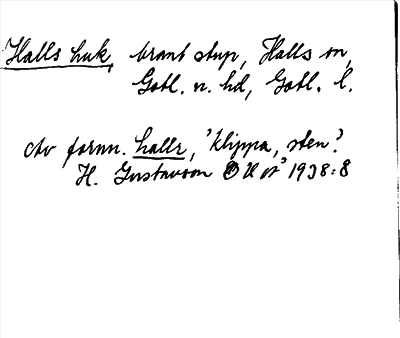 Halls huk, brant stup, Halls sn,
Gotl. n. hd, Gotl. l.
Av fornn. hallr, 'klippa, sten'.
H. Gustavson 1938:8